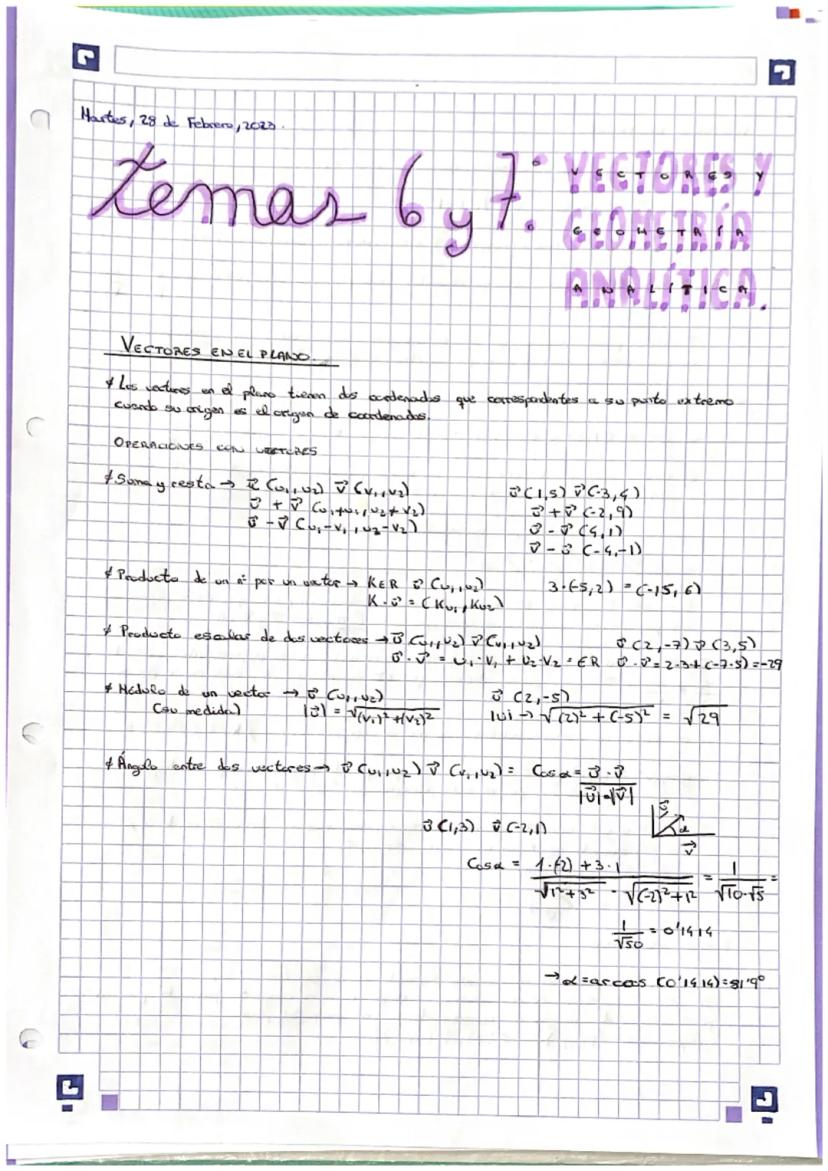 Martes, 28 de Febrero, 2023.
temas 6 y 7: VECTORES Y
GEOMETRÍA
ANALÍTICA.
VECTORES EN EL PLANO.
* Los vectores en el plano tienen dos coordenadas que correspondientes a su punto extremo
cuando su origen es el origen de coordenadas.
OPERACIONES CON VECTORES
* Suma y resta → u⃗ (u₁,u₂) v⃗ (v₁,v₂)
u⃗ + v⃗ (u₁+v₁, u₂+v₂)
u⃗ - v⃗ (u₁-v₁, u₂-v₂)
u⃗ (1,5) v⃗ (-3,4)
u⃗ + v⃗ (-2,9)
u⃗ - v⃗ (4,1)
v⃗ - u⃗ (-4,-1)
* Producto de un nº por un vector → K∈R u⃗ (u₁,u₂) 3·(-5,2) = (-15,6)
K·u⃗ = (Ku₁, Ku₂)
* Producto escalar de dos vectores → u⃗ (u₁,u₂) v⃗ (v₁,v₂) u⃗ (2,-7) v⃗ (3,5)
u⃗ · v⃗ = u₁·v₁ + u₂·v₂ = ∈R u⃗ · v⃗ = 2·3+(-7·5) = -29
* Módulo de un vector → u⃗ (u₁,u₂) u⃗ (2,-5)
(su medida) |u⃗| = √(v₁)²+(v₂)² |u| → √(2)²+(-5)² = √29
* Ángulo entre dos vectores → u⃗ (u₁,u₂) v⃗ (v₁,v₂) = Cos α = u⃗ · v⃗ / |u⃗|·|v⃗|
u⃗ (1,3) v⃗ (-2,1)
u⃗
α
v⃗
Cos α = 1·(-2)+3·1 / √1²+3² · √(-2)²+1² = 1 / √10·√5 =
1/√50 = 0'1414
→ α = arccos (0'1414) = 81'9°